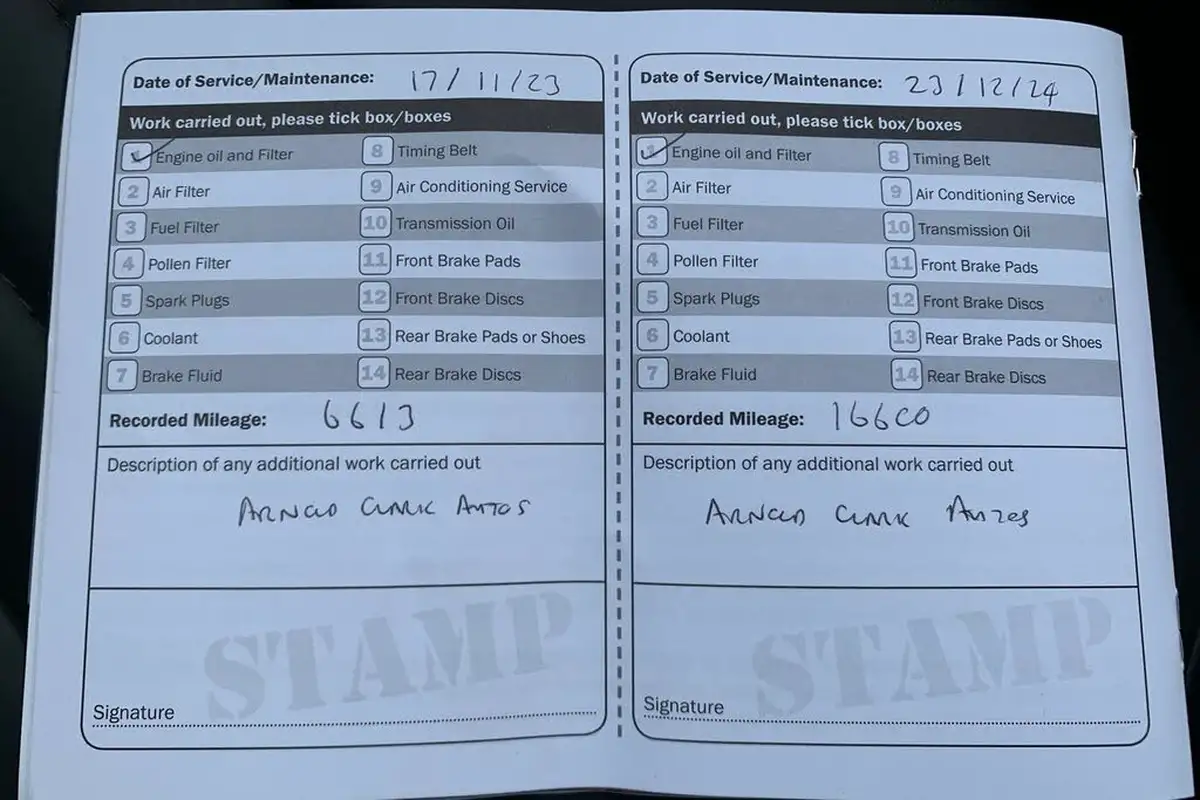 Date of Service/Maintenance: 17/11/23
Work carried out, please tick box/boxes
1 Engine oil and Filter
8 Timing Belt
2 Air Filter
9 Air Conditioning Service
3 Fuel Filter
10 Transmission Oil
4 Pollen Filter
11 Front Brake Pads
5 Spark Plugs
12 Front Brake Discs
6 Coolant
13 Rear Brake Pads or Shoes
7 Brake Fluid
14 Rear Brake Discs
Recorded Mileage: 6613
Description of any additional work carried out
ARNOLD CLARK AUTOS
STAMP
Signature
Date of Service/Maintenance: 23/12/24
Work carried out, please tick box/boxes
1 Engine oil and Filter
8 Timing Belt
2 Air Filter
9 Air Conditioning Service
3 Fuel Filter
10 Transmission Oil
4 Pollen Filter
11 Front Brake Pads
5 Spark Plugs
12 Front Brake Discs
6 Coolant
13 Rear Brake Pads or Shoes
7 Brake Fluid
14 Rear Brake Discs
Recorded Mileage: 16600
Description of any additional work carried out
ARNOLD CLARK AUTOS
STAMP
Signature